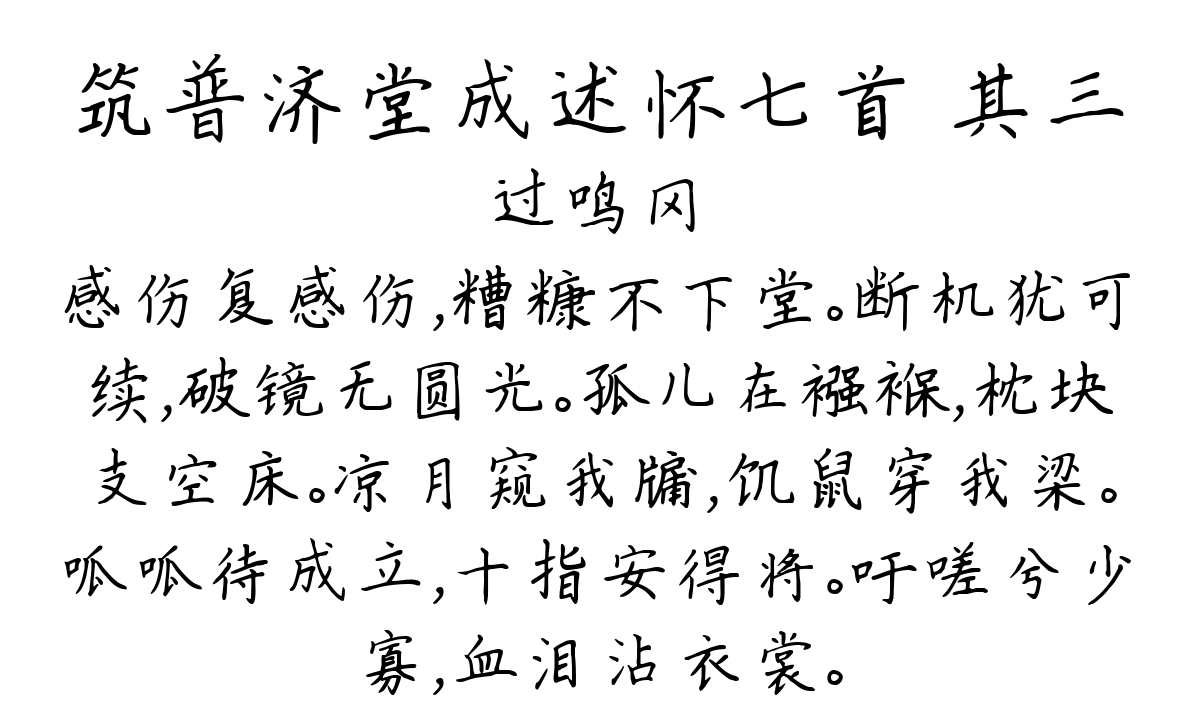 筑普济堂成述怀七首 其三
过鸣冈
感伤复感伤,糟糠不下堂。断机犹可
续,破镜无圆光。孤儿在襁褓,枕块
支空床。凉月窥我牖,饥鼠穿我梁。
呱呱待成立,十指安得将。吁嗟兮少
寡,血泪沾衣裳。